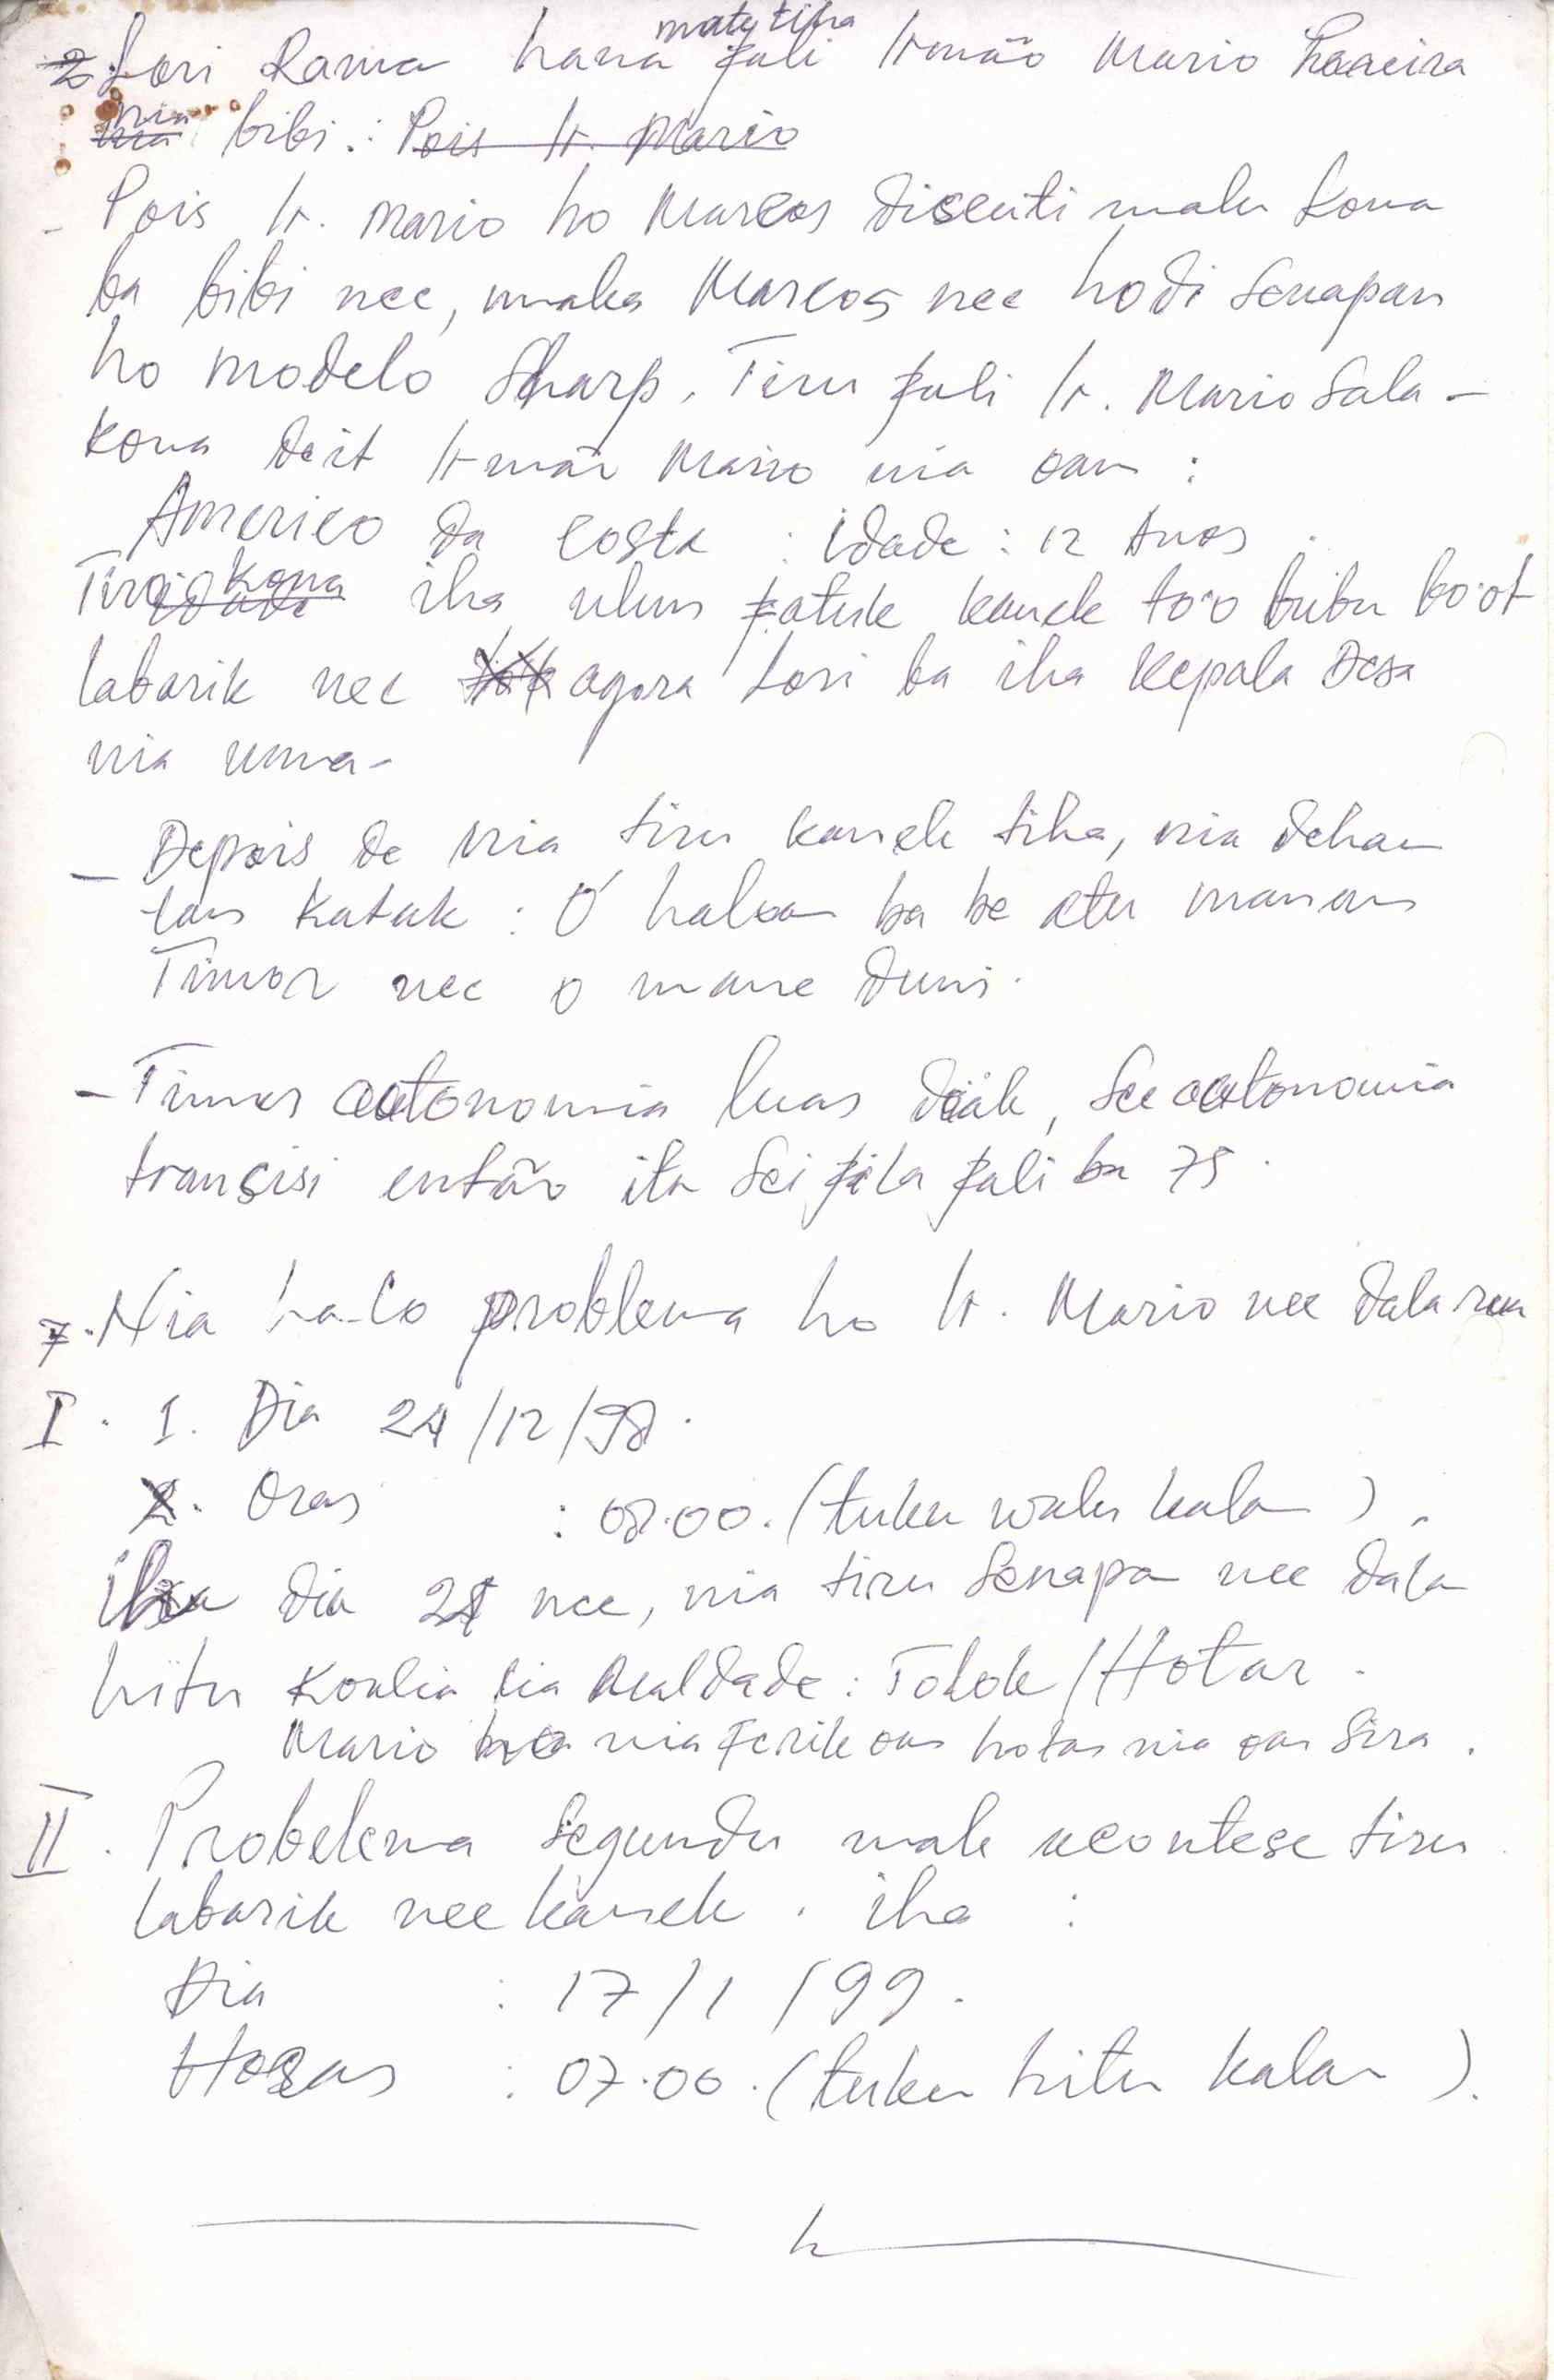 maty tiha
2. Lori Rama hana fali Irmão Mario
nia bibi : Pois Ir. Mario
- Pois Ir. Mario ho Marcos discuti malu kona
ba bibi nee, maka Marcos nee hodi Senapan
ho modelo Sharp. Tiru fali Ir. Mario Sala -
Kona deit Irmão Mario nia oan :
Americo da Costa : idade : 12 Anos .
Tiru kona iha ulun fatuk kanek to'o bubu bo'ot
labarik nee agora lori ba iha Kepala Desa
nia uma -
- Depois de nia tiru kanek tiha, nia dehan
tan Katak : O' haloan ba be atu manan
Timor nee o mane duni.
- Timor autonomia luas diak, See autonomia
transisi então ita Sei fila fali ba 75 .
7. Nia ha-lo problema ho Ir. Mario nee dala rua
I . 1. Dia 24/12/98.
2. Oras : 08.00. (tuku walu kalan) .
iha dia 24 nee, nia tiru Senapa nee dala
hitu koalia lia Maldade : Tolok / Hotar .
Mario ho nia Ferik oan hotar nia oan Sira .
II . Probelema Segundu mak acontese tiru
labarik nee kanek . iha :
Dia : 17 / 1 / 99 .
Horas : 07.00 . (tuku hitu kalan ).